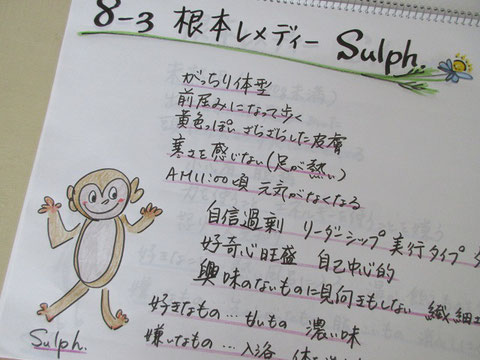 8-3 根本レメディー Sulph.
がっちり体型
前屈みになって歩く
黄色っぽい、ざらざらした皮膚
寒さを感じない(足が熱い)
AM11:00頃 元気がなくなる
自信過剰 リーダーシップ 実行タイプ
好奇心旺盛 自己中心的
興味のないものに見向きもしない 繊細
好きなもの…甘いもの 濃い味
嫌いなもの…入浴
Sulph.